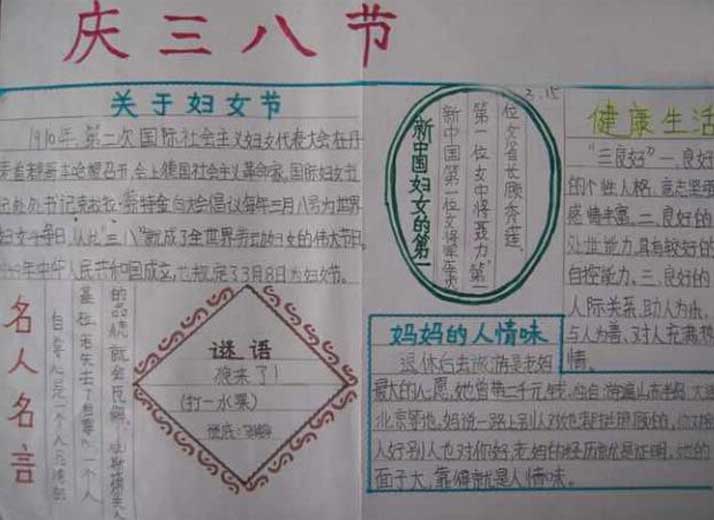 庆三八节
关于妇女节
1910年,第二次国际社会主义妇女代表大会在丹
麦首都哥本哈根召开,会上德国社会主义革命家、国际妇女书
记处书记克拉拉·蔡特金向大会倡议每年三月八号为世界
妇女日,从此"三八"就成了全世界劳动妇女的伟大节日。
中华人民共和国成立,也规定了3月8日为妇女节。
名人名言
自尊心是一个人品德的
基础,若失去了自尊心一个人
的品德就会瓦解。
谜语
狼来了!
(打一水果)
谜底:
新中国妇女的第一
新中国第一位女将军
第一位女中将聂力"第一
位女省长顾秀莲。
3.15
健康生活
"三良好"一、良好
的个性人格,意志坚强
感情丰富。二、良好的
处世能力,具有较好的
自控能力。三、良好的
人际关系,助人为乐,
与人为善、对人充满热
情。
妈妈的人情味
退休后去旅游是老妈
最大的心愿,她曾带二千元钱,独自
北京等地。妈说一路上别人对她都挺照顾的,你对别
人好别人也对你好,老妈的经历就是证明。她的
面子大,靠得就是人情味。